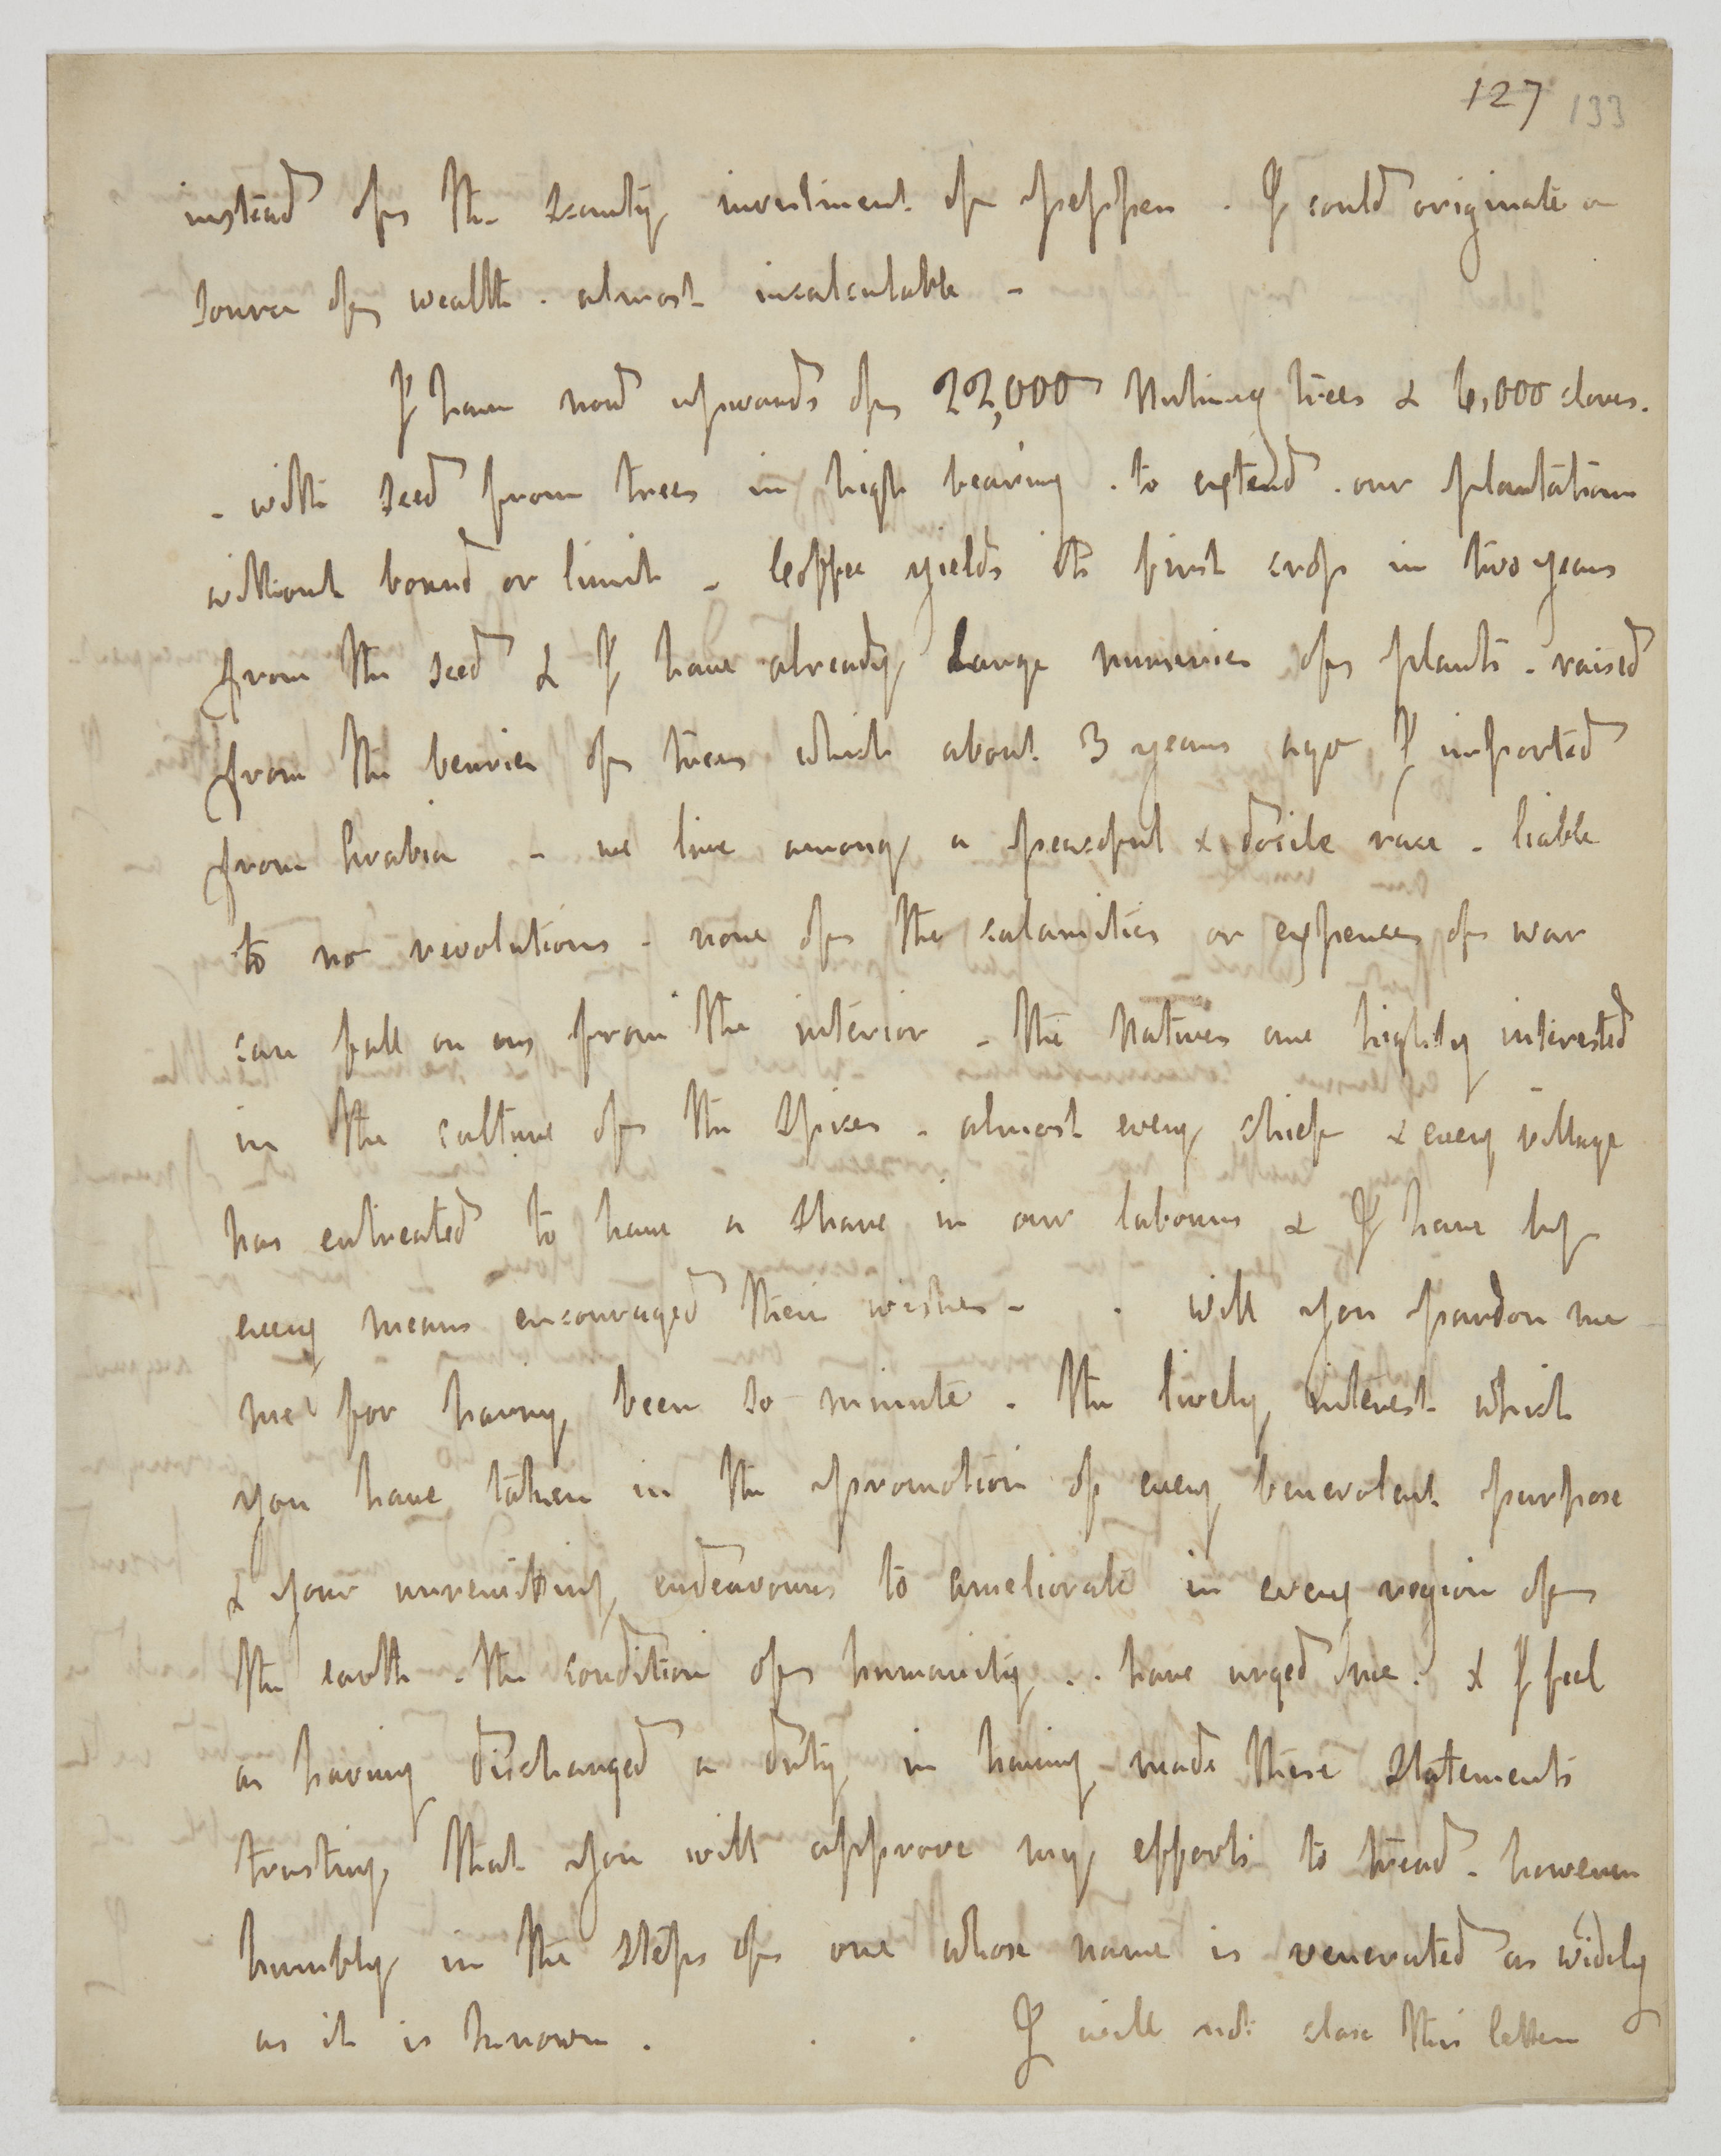 127 133
instead of the scanty investment of pepper . I could originate a
source of wealth . almost incalculable -
I have now upwards of 22,000 Nutmeg trees & 6,000 cloves .
- with seed from trees in high bearing . to extend . our plantations
without bound or limit - Coffee yields its first crop in two years
from the seed & I have already large nurseries of plants - raised
from the berries of trees which about 3 years ago I imported
from Arabia - we live among a peaceful & docile race - liable
to no revolutions - none of the calamities or expenses of war
can fall on us from the interior - the Natives are highly interested
in the culture of the Spices - almost every chief & every village
has entreated to have a share in our labours & I have by
every means encouraged their wishes - . will you pardon me
me for having been so minute . The lively interest which
you have taken in the promotion of every benevolent purpose
& your unremitting endeavours to ameliorate in every region of
the earth - the condition of humanity . . have urged me . & I feel
as having discharged a duty in having made these Statements
trusting that you will approve my efforts to tread - however
humbly in the steps of one whose name is venerated as widely
as it is known . . . I will not close this letter